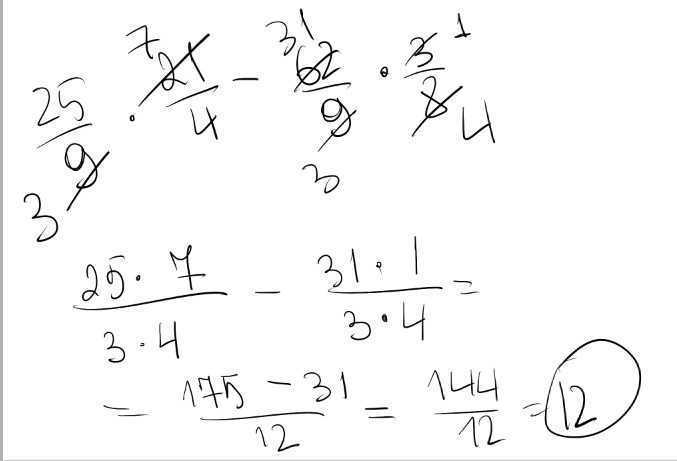 25/9 · 21/4 − 62/9 · 3/8
3 7 31 3 1 4
25·7/3·4 − 31·1/3·4 =
= 175 − 31/12 = 144/12 = 12